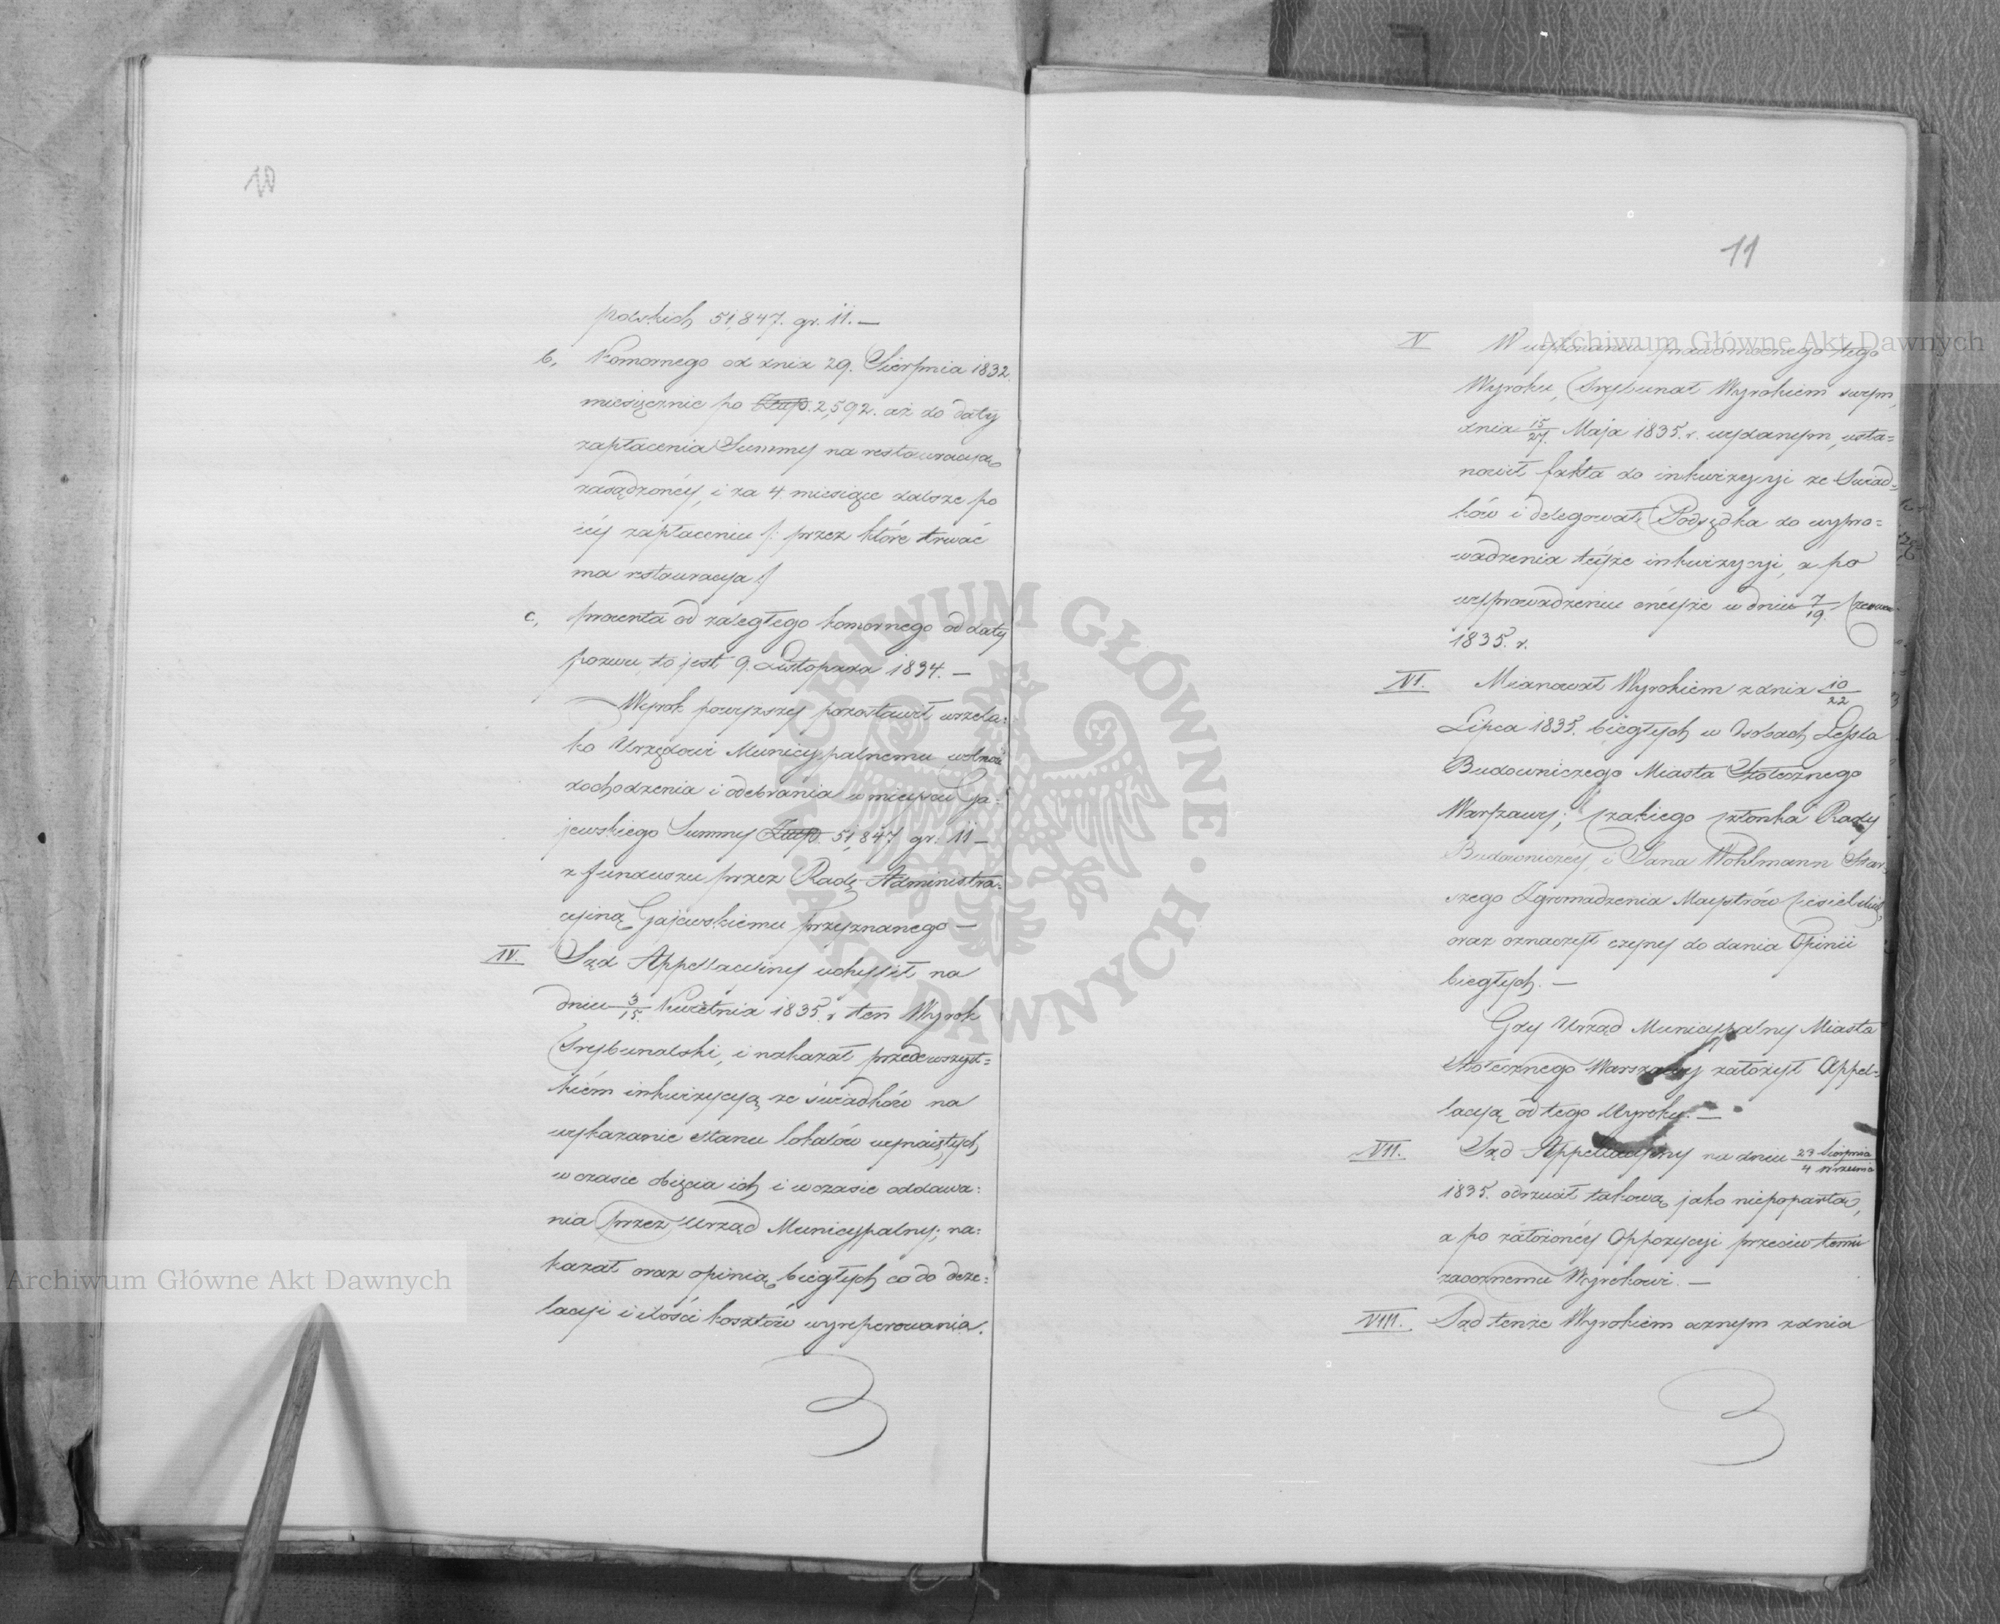 10
polskich 51,847. gr. 11. —
b, Komornego od dnia 29. Sierpnia 1832.
miesięcznie po Złotp. 2,592. aż do daty
zapłacenia Summy na restauracyą
zasądzonéj, i za 4 miesiące dalsze po
iéj zapłaceniu /: przez które trwać
ma restauracya :/
c, procenta od zaległego komornego od daty
pozwu, to jest 9. Listopada 1834. —
Wyrok powyższy pozostawił wszela=
ko Urzędowi Municypalnemu wolność
dochodzenia i odebrania w miejscu Ga=
jewskiego Summy Złotp. 51,847 gr. 11 —
z funduszu przez Radę Administra=
cyiną Gajewskiemu przyznanego —
IV. Sąd Appellacyiny uchylił na
dniu 3/15. Kwietnia 1835. r. ten Wyrok
Trybunalski, i nakazał przedewszyst=
kiém inkwizycyą ze świadków na
wykazanie stanu lokalów wynaiętych
w czasie obięcia ich i w czasie oddawa=
nia przez Urząd Municypalny; na=
kazał oraz opinią biegłych co do deze=
lacyi i ilości kosztów wyreperowania.
11
V W wykonaniu prawomocnego tego
Wyroku, Trybunał Wyrokiem swym,
dnia 15/27. Maja 1835. r. wydanym, usta=
nowił fakta do inkwizycyi ze Świad=
ków i delegował Podsędka do wypro=
wadzenia téjże inkwizycyi, a po
wyprowadzeniu onéjże w dniu 7/19. Czerwca
1835. r.
VI. Mianował Wyrokiem z dnia 10/22
Lipca 1835. biegłych w Osobach Lessla
Budowniczego Miasta Stołecznego
Warszawy; członka Rady
Budowniczéj, i Jana Wohlmann Star=
szego Zgromadzenia Maystrów Ciesielskich,
oraz oznaczył czyny do dania Opinii
biegłych. —
Gdy Urząd Municypalny Miasta
Stołecznego Warszawy założył Appel=
lacyą od tego Wyroku. —
VII. Sąd Appellacyiny na dniu 23 Sierpnia/4 Września
1835. odrzucił takową jako niepopartą,
a po założonéj Oppozycyi przeciw temu
zaocznemu Wyrokowi. —
VIII. Sąd tenże Wyrokiem ocznym z dnia
Archiwum Główne Akt Dawnych
Archiwum Główne Akt Dawnych
ARCHIWUM GŁÓWNE AKT DAWNYCH